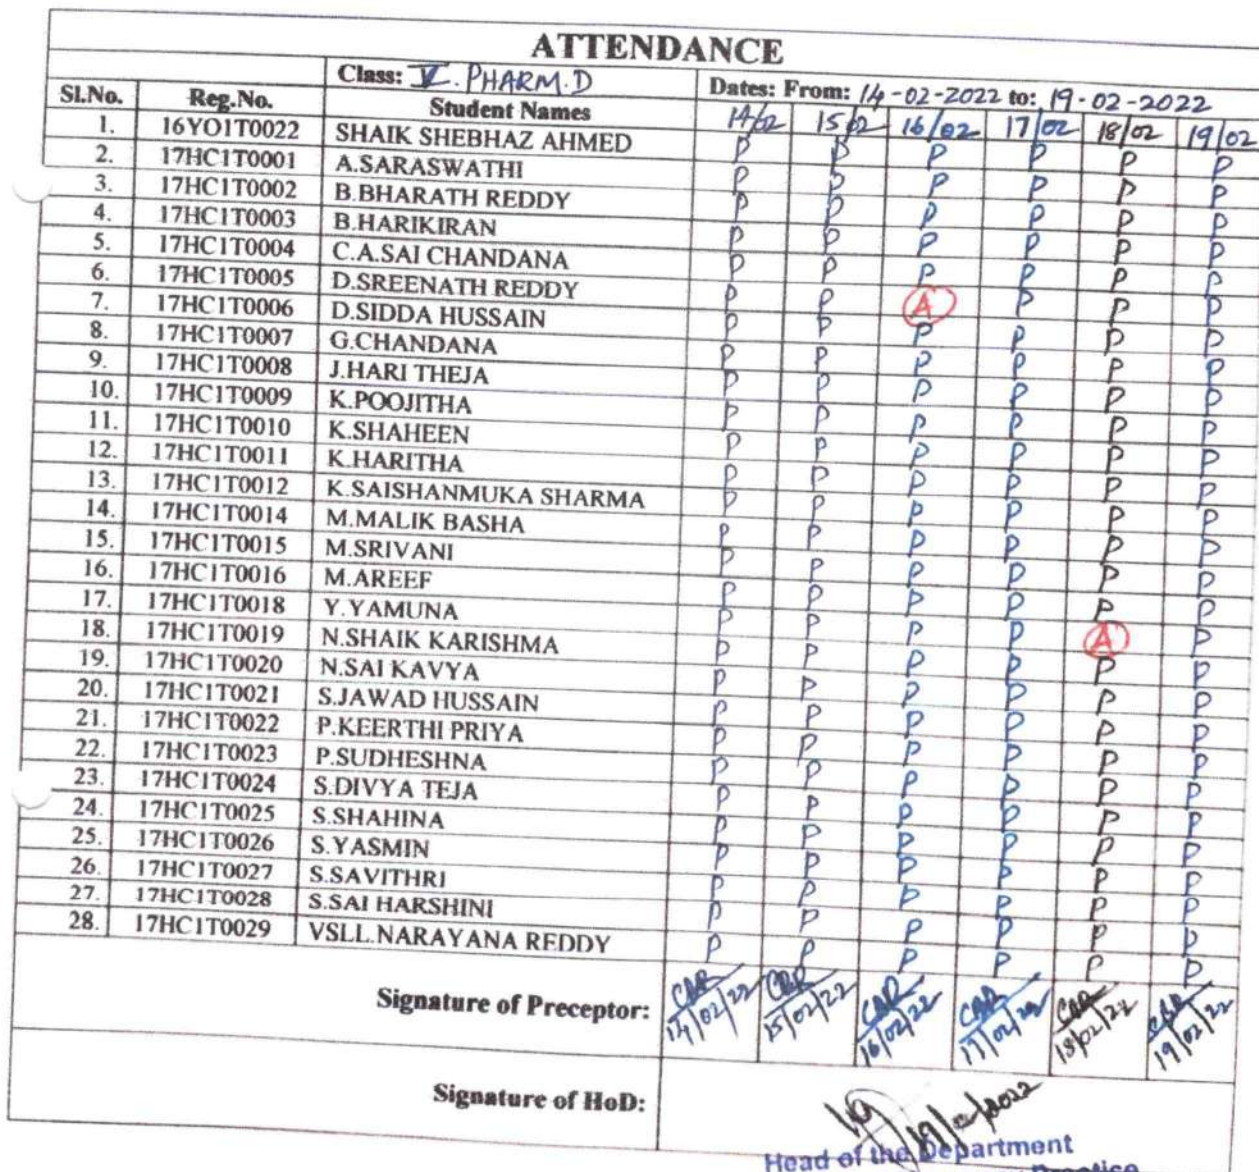 ATTENDANCE
Class: V. PHARM.D Dates: From: 14-02-2022 to: 19-02-2022
Sl.No. Reg.No. Student Names 14/02 15/02 16/02 17/02 18/02 19/02
1. 16YO1T0022 SHAIK SHEBHAZ AHMED P P P P P P
2. 17HC1T0001 A.SARASWATHI P P P P P P
3. 17HC1T0002 B.BHARATH REDDY P P P P P P
4. 17HC1T0003 B.HARIKIRAN P P P P P P
5. 17HC1T0004 C.A.SAI CHANDANA P P P P P P
6. 17HC1T0005 D.SREENATH REDDY P P A P P P
7. 17HC1T0006 D.SIDDA HUSSAIN P P P P P P
8. 17HC1T0007 G.CHANDANA P P P P P P
9. 17HC1T0008 J.HARI THEJA P P P P P P
10. 17HC1T0009 K.POOJITHA P P P P P P
11. 17HC1T0010 K.SHAHEEN P P P P P P
12. 17HC1T0011 K.HARITHA P P P P P P
13. 17HC1T0012 K.SAISHANMUKA SHARMA P P P P P P
14. 17HC1T0014 M.MALIK BASHA P P P P P P
15. 17HC1T0015 M.SRIVANI P P P P P P
16. 17HC1T0016 M.AREEF P P P P P P
17. 17HC1T0018 Y.YAMUNA P P P P A P
18. 17HC1T0019 N.SHAIK KARISHMA P P P P P P
19. 17HC1T0020 N.SAI KAVYA P P P P P P
20. 17HC1T0021 S.JAWAD HUSSAIN P P P P P P
21. 17HC1T0022 P.KEERTHI PRIYA P P P P P P
22. 17HC1T0023 P.SUDHESHNA P P P P P P
23. 17HC1T0024 S.DIVYA TEJA P P P P P P
24. 17HC1T0025 S.SHAHINA P P P P P P
25. 17HC1T0026 S.YASMIN P P P P P P
26. 17HC1T0027 S.SAVITHRI P P P P P P
27. 17HC1T0028 S.SAI HARSHINI P P P P P P
28. 17HC1T0029 VSLL.NARAYANA REDDY P P P P P P
Signature of Preceptor: 14/02/22 15/02/22 16/02/22 17/02/22 18/02/22 19/02/22
Signature of HoD:
Head of the Department